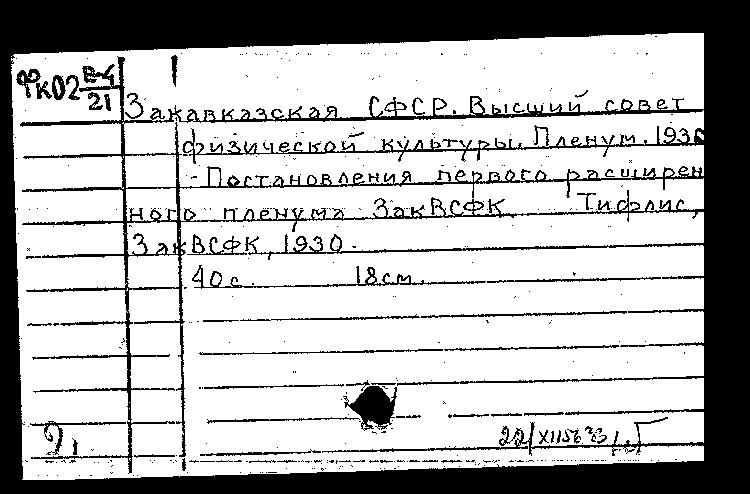 ФК02 В-4/21
Закавказская СФСР. Высший совет
физической культуры. Пленум. 1930
Постановления первого расширен
ного пленума ЗакВСФК. Тифлис,
ЗакВСФК, 1930.
40 с. 18 см.